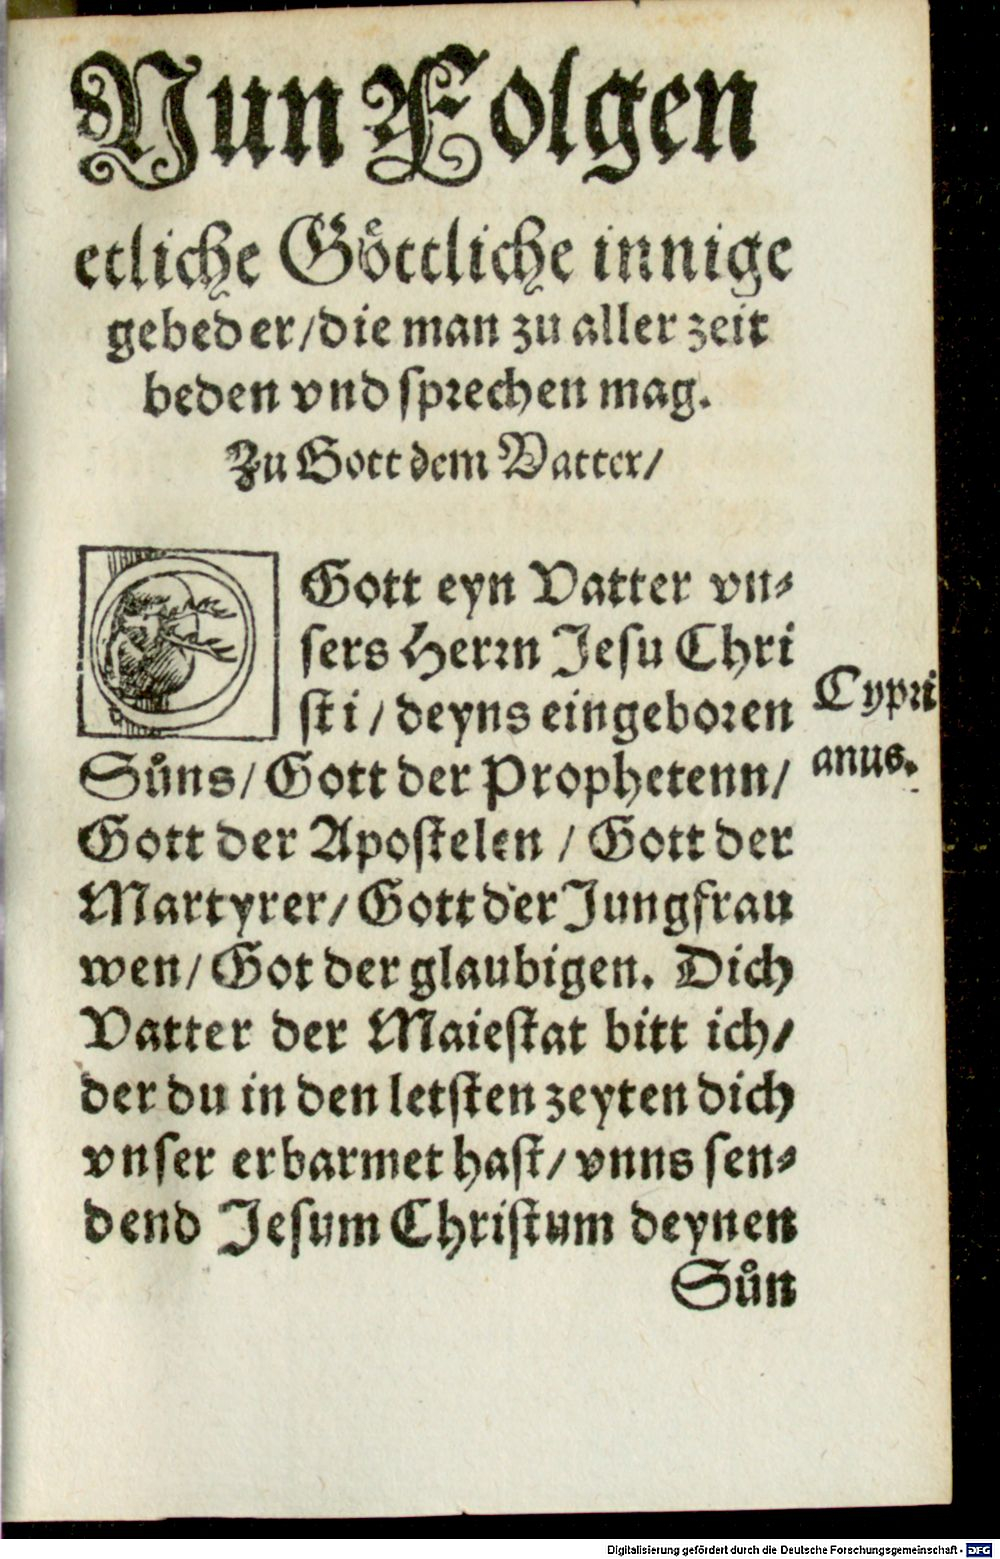 Nun Folgen
etliche Göttliche innige
gebeder/die man zu aller zeit
beden vnd sprechen mag.
Zu Gott dem Vatter/
O Gott eyn Vatter vn⸗
sers Herrn Jesu Chri
sti / deyns eingeboren
Sůns/ Gott der Prophetenn/
Gott der Apostelen / Gott der
Martyrer/ Gott der Jungfrau
wen/ Got der glaubigen. Dich
Vatter der Maiestat bitt ich/
der du in den letsten zeyten dich
vnser erbarmet hast/ vnns sen⸗
dend Jesum Christum deynen
Sůn
Cypri
anus.
Digitalisierung gefördert durch die Deutsche Forschungsgemeinschaft - DFG